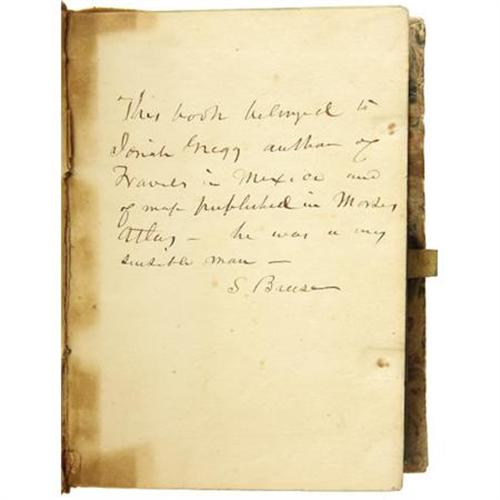 This book belonged to
Josiah Gregg author of
Travels in Mexico and
of map published in Morses
Atlas – he was a very
sensible man –
S Breese